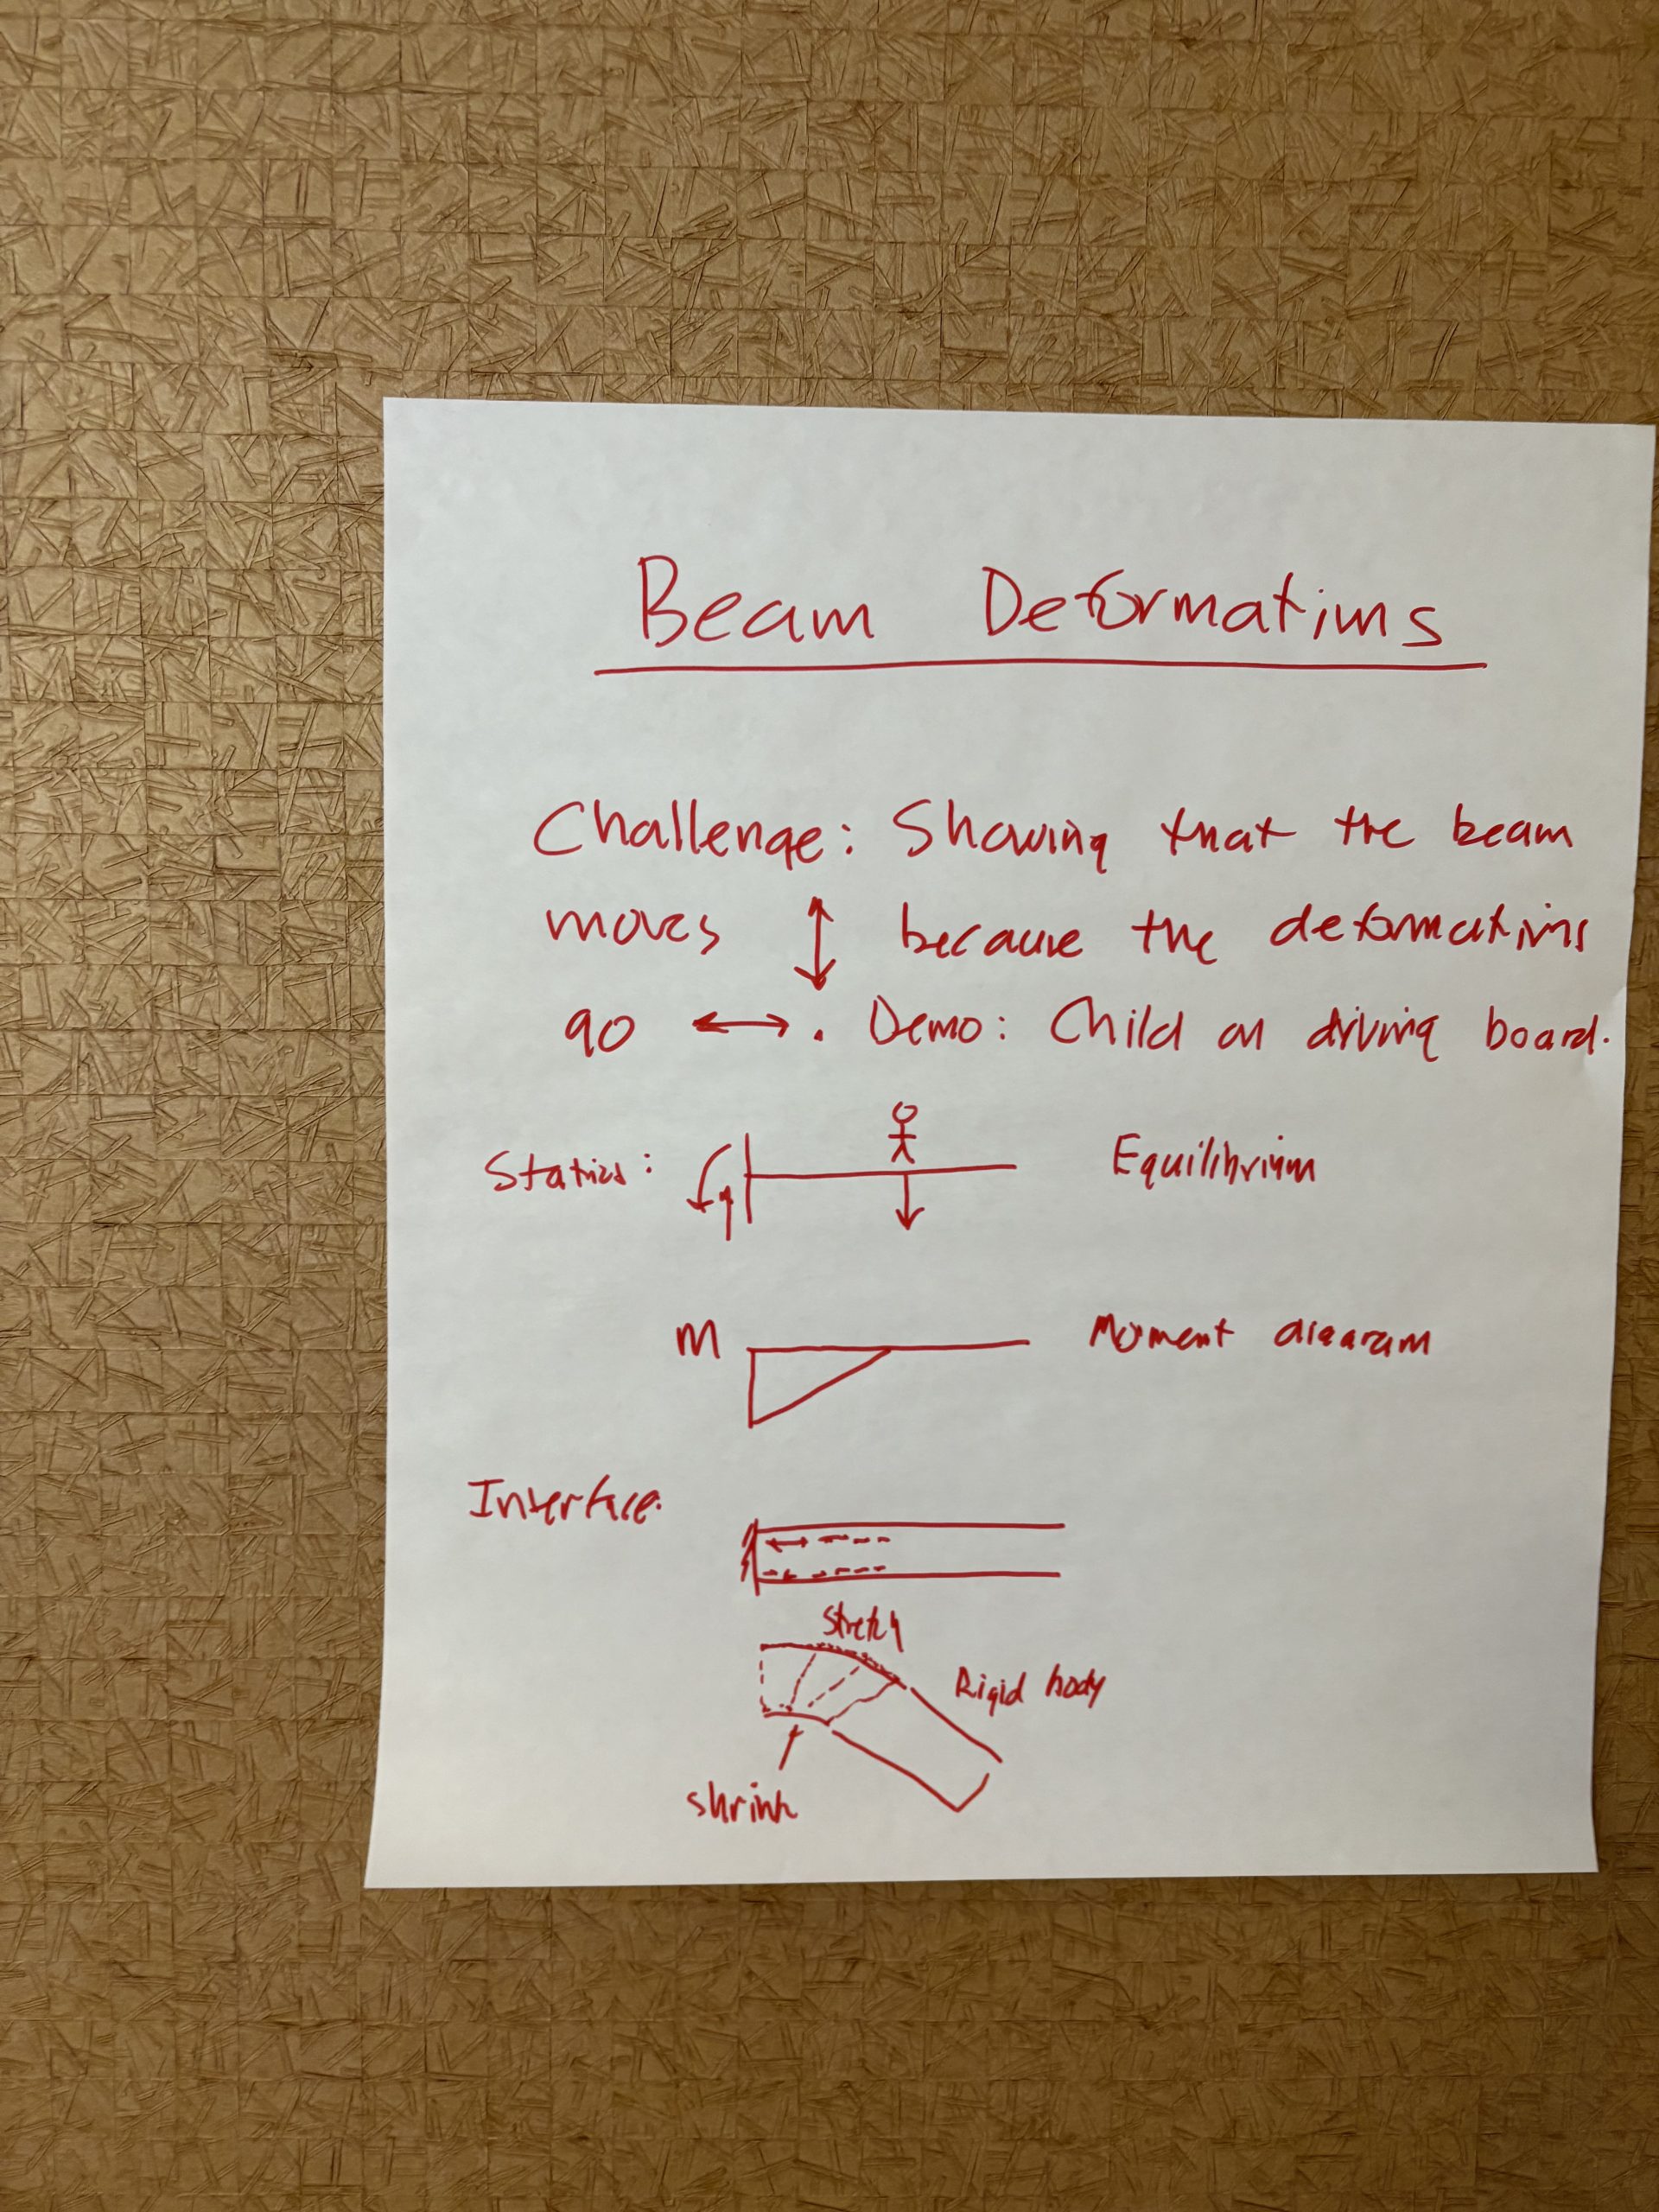 Beam Deformations
Challenge: Showing that the beam
moves ↕ because the deformations
go ↔. Demo: Child on diving board.
Statics: Equilibrium
M Moment diagram
Interface:
Stretch
Rigid body
shrink